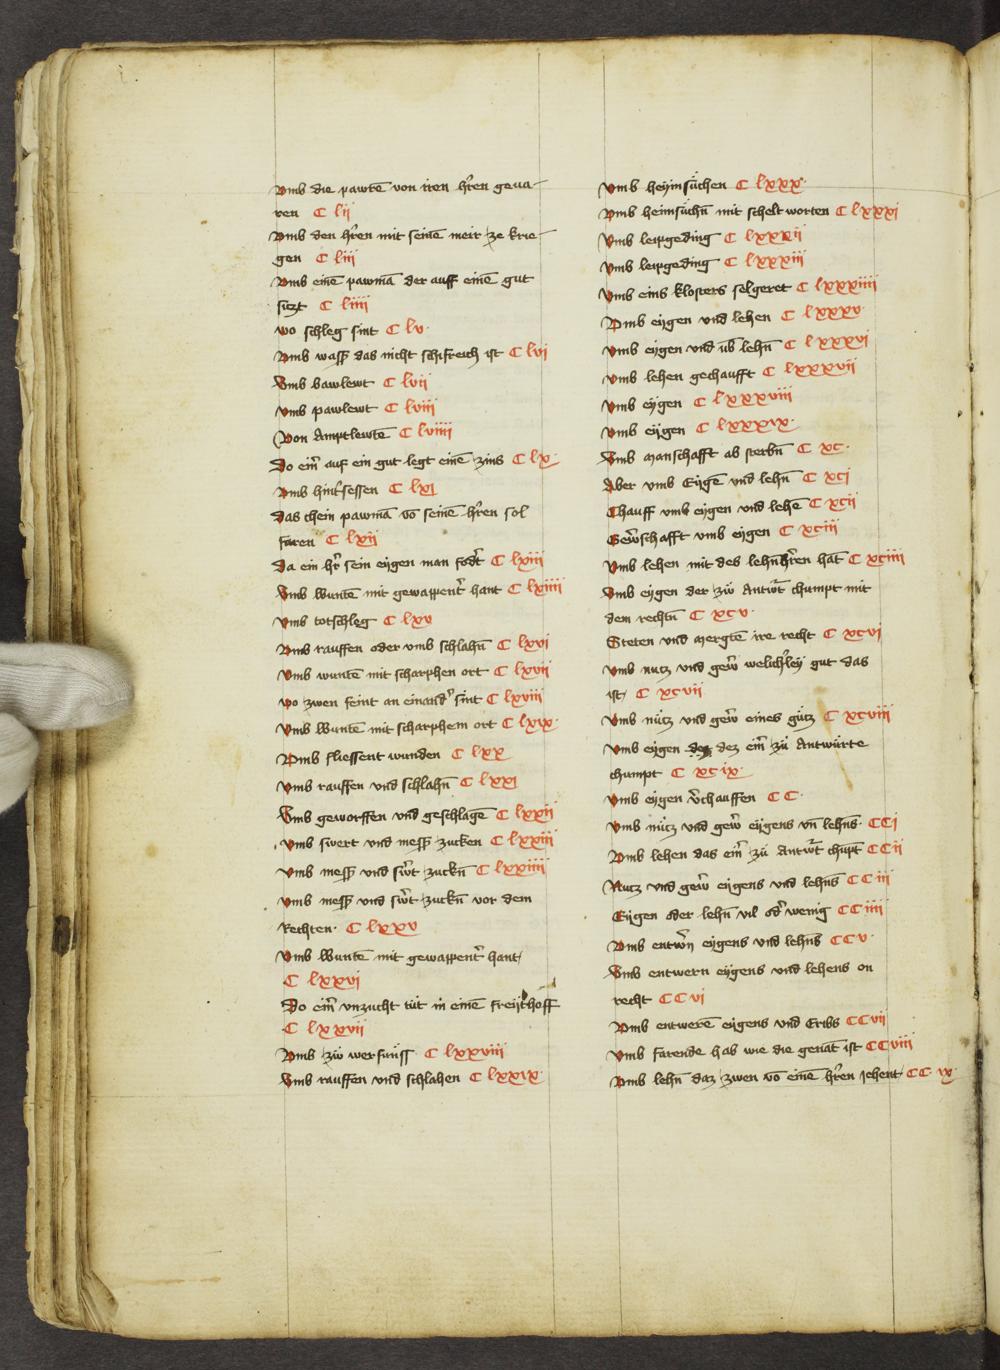 Vmb die pawtē von iren hr̄en geua-
ren C lii
Vmb den hr̄en mit seinē meir ze krie-
gen C liii
Vmb einē pawmā der auff einē gut
siczt C liiii
wo schleg sint C lv.
Vmb wass das nicht schifreich ist C lvi
Vmb bawlewt C lvii
Vmb pawlewt C lviii
Von Amptlewtē C lviiii
Do eīm auf ein gut legt einē zins C lx.
Vmb hint̄sessen C lxi
Das chein pawmā vō seinē hr̄en sol
faren C lxii
Da ein hr̄ sein eygen man fodt̄ C lxiii
Vmb wuntē mit gewappent̄ hant C lxiiii
Vmb totschleg C lxv
Vmb rauffen oder vmb schlahn̄ C lxvi
Vmb wuntē mit scharphen ort C lxvii
wo zwen feint an einand̄ sint C lxviii
Vmb wuntē mit scharphem ort C lxix.
Vmb fliessent wunden C lxx
Vmb rauffen vnd schlahn̄ C lxxi
Vmb geworffen vnd geschlagē C lxxii
Vmb swert vnd mess zucken C lxxiii
Vmb mess vnd sw̄t zuckn̄ C lxxiiii
Vmb mess vnd sw̄t zuckn̄ vor dem
Rechten. C lxxv
Vmb wuntē mit gewappent̄ hant
C lxxvi
Do eīm vnzucht tüt in einē freythoff
C lxxvii
Vmb zw̄ werfunss C lxxviii
Vmb rauffen vnd schlahen C lxxix.
Vmb heymsůchen C lxxx.
Vmb heimsůchn̄ mit schelt worten C lxxxi
Vmb leipgeding C lxxxii
Vmb leipgeding C lxxxiii
Vmb eins klosters selgeret C lxxxiiii
Vmb eygen vnd lehen C lxxxv.
Vmb eygen vnd ūb lehn̄ C lxxxvi
Vmb lehen gechaufft C lxxxvii
Vmb eygen C lxxxviii
Vmb eygen C lxxxix.
Vmb manschafft ab sterbn̄ C xc.
Aber vmb Eygē vnd lehn̄ C xci
Chauff vmb eygen vnd lehē C xcii
Gew̄schafft vmb eygen C xciii
Vmb lehen mit des lehnhr̄en hāt C xciiii
Vmb eygen der zů Antwr̄t chumpt mit
dem rechtn̄ C xcv.
Steten vnd mergtē ire recht C xcvi
Vmb nutz vnd gew̄ welich̄ley gut das
ist C xcvii
Vmb nůtz vnd gew̄ eines gůtz C xcviii
Vmb eygen dez eīm zů Antwürte
chumpt C xcix.
Vmb eygen v̄chauffen CC.
Vmb nůtz vnd gew̄ eygens vn̄ lehn̄s. CCi
Vmb lehen das eīm zů Antwr̄t chūpt CCii
Nutz vnd gew̄ eygens vnd lehn̄s CCiii
Eygen oder lehn̄ vil od̄ wenig CCiiii
Vmb entwn̄ eygens vnd lehn̄s CCv.
Vmb entwern eygens vnd lehens on
recht CCvi
Vmb entwerē eygens vnd Eribs CCvii
Vmb farende hab wie die genāt ist CCviii
Vmb lehn̄ daz zwen vō einē hr̄en jehent CC ix.